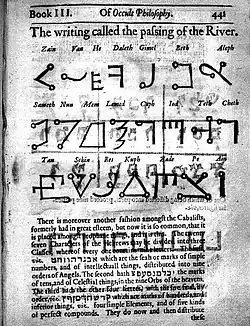 Book III. Of Occult Philosophy. 441
The writing called the passing of the River.
Zain Vau He Daleth Gimel Beth Aleph
Samech Nun Mem Lamed Caph Jod Teth Cheth
Tau Schin Res Kuph Zade Pe
There is moreover another fashion amongst the Cabalists,
formerly had in great esteem, but now it is so common, that it
is placed amongst prophane things, and is this. The twenty
seven Characters of the Hebrews may be divided into three
Classes, whereof every one
numbers, and of intellectual things, distributed into nine
orders of Angels. The second hath
of tens, and of Celestial things, in the nine Orbs of the Heavens.
The third hath the other four letters, with the five final, by
order, viz. which are marks of hundreds, and
inferiour things, viz. four simple Elements, and of five kinds
of perfect compounds. They do now and then distribute